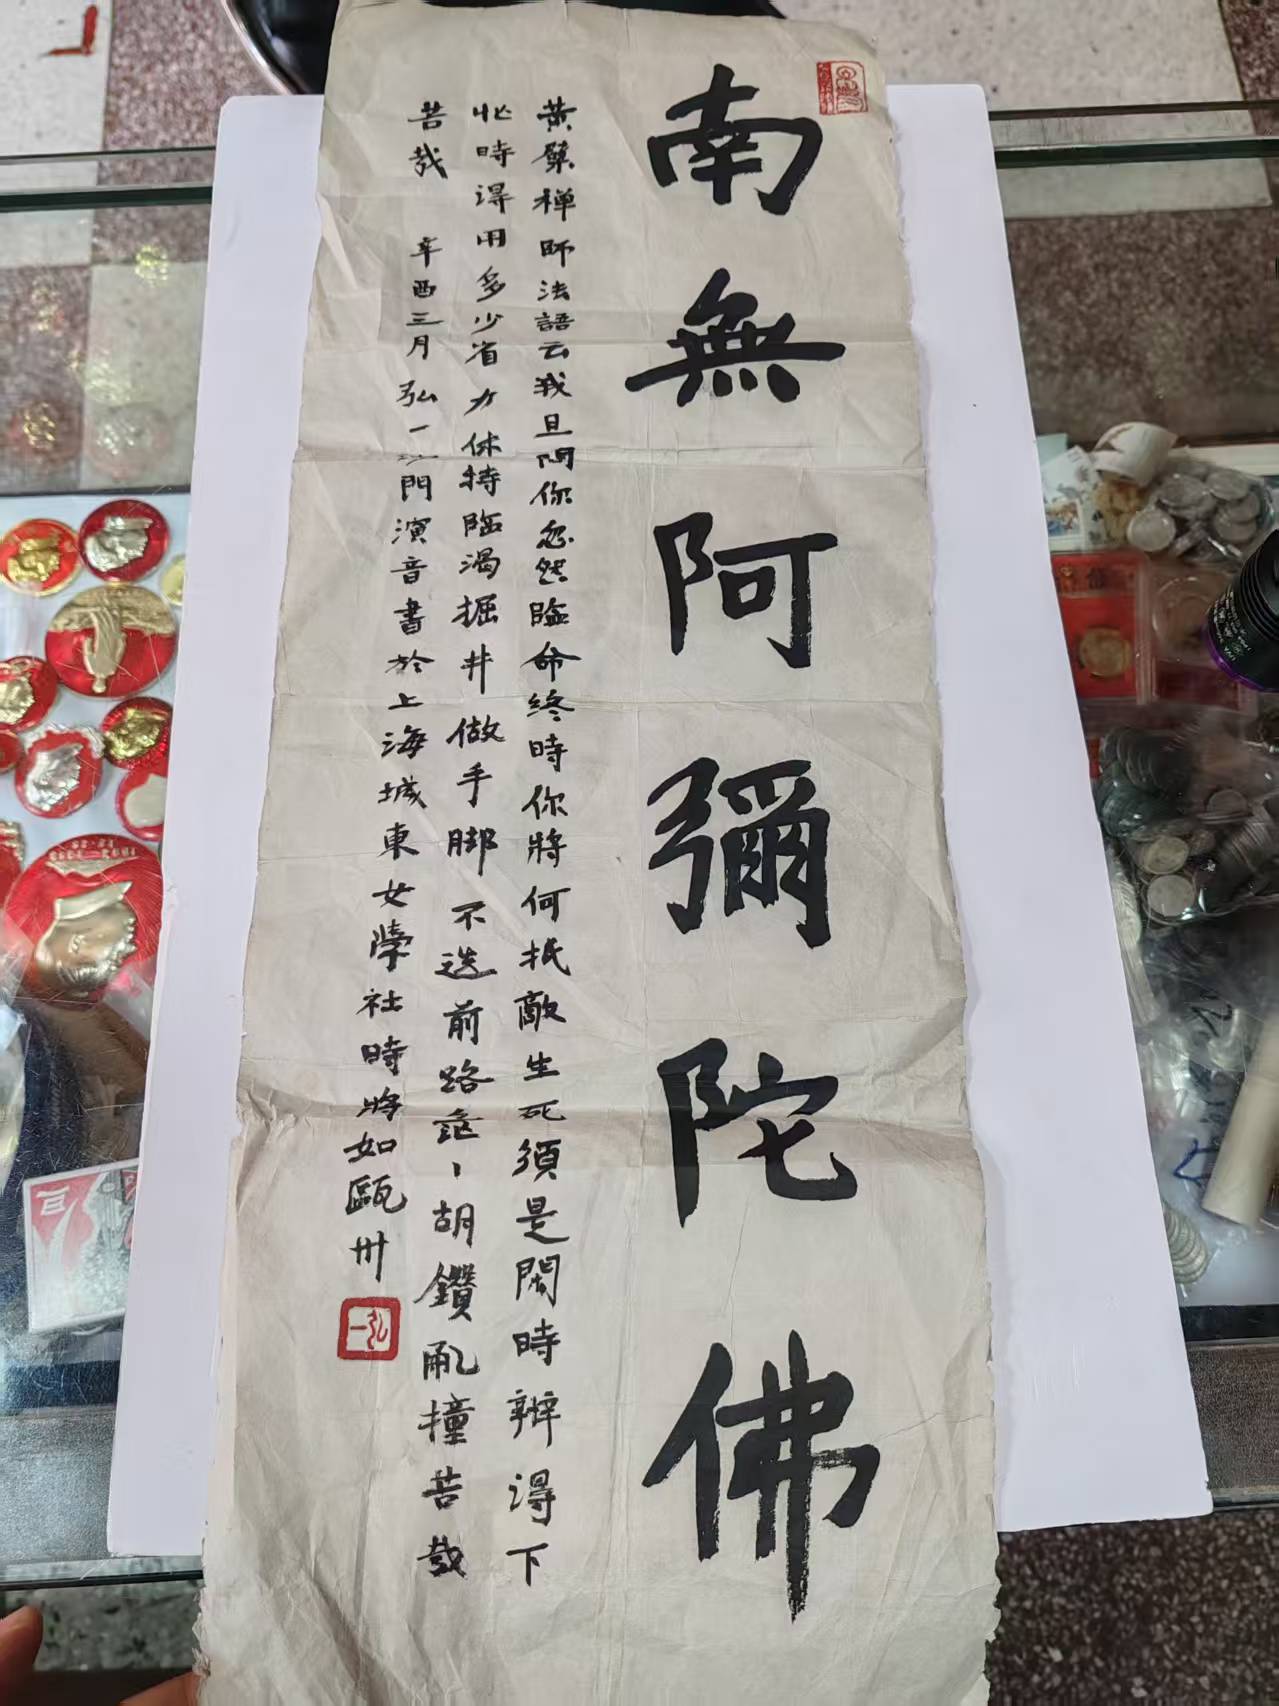 南無阿彌陀佛
黄檗禅師法語云我且問你忽然臨命終時你將何抵敵生死須是閑時辦得下
忙時得用多少省力休待臨渴掘井做手脚不迭前路茫丶胡鑽亂撞苦哉
苦哉 辛酉三月弘一沙門演音書於上海城東女學社時將如甌州
弘一